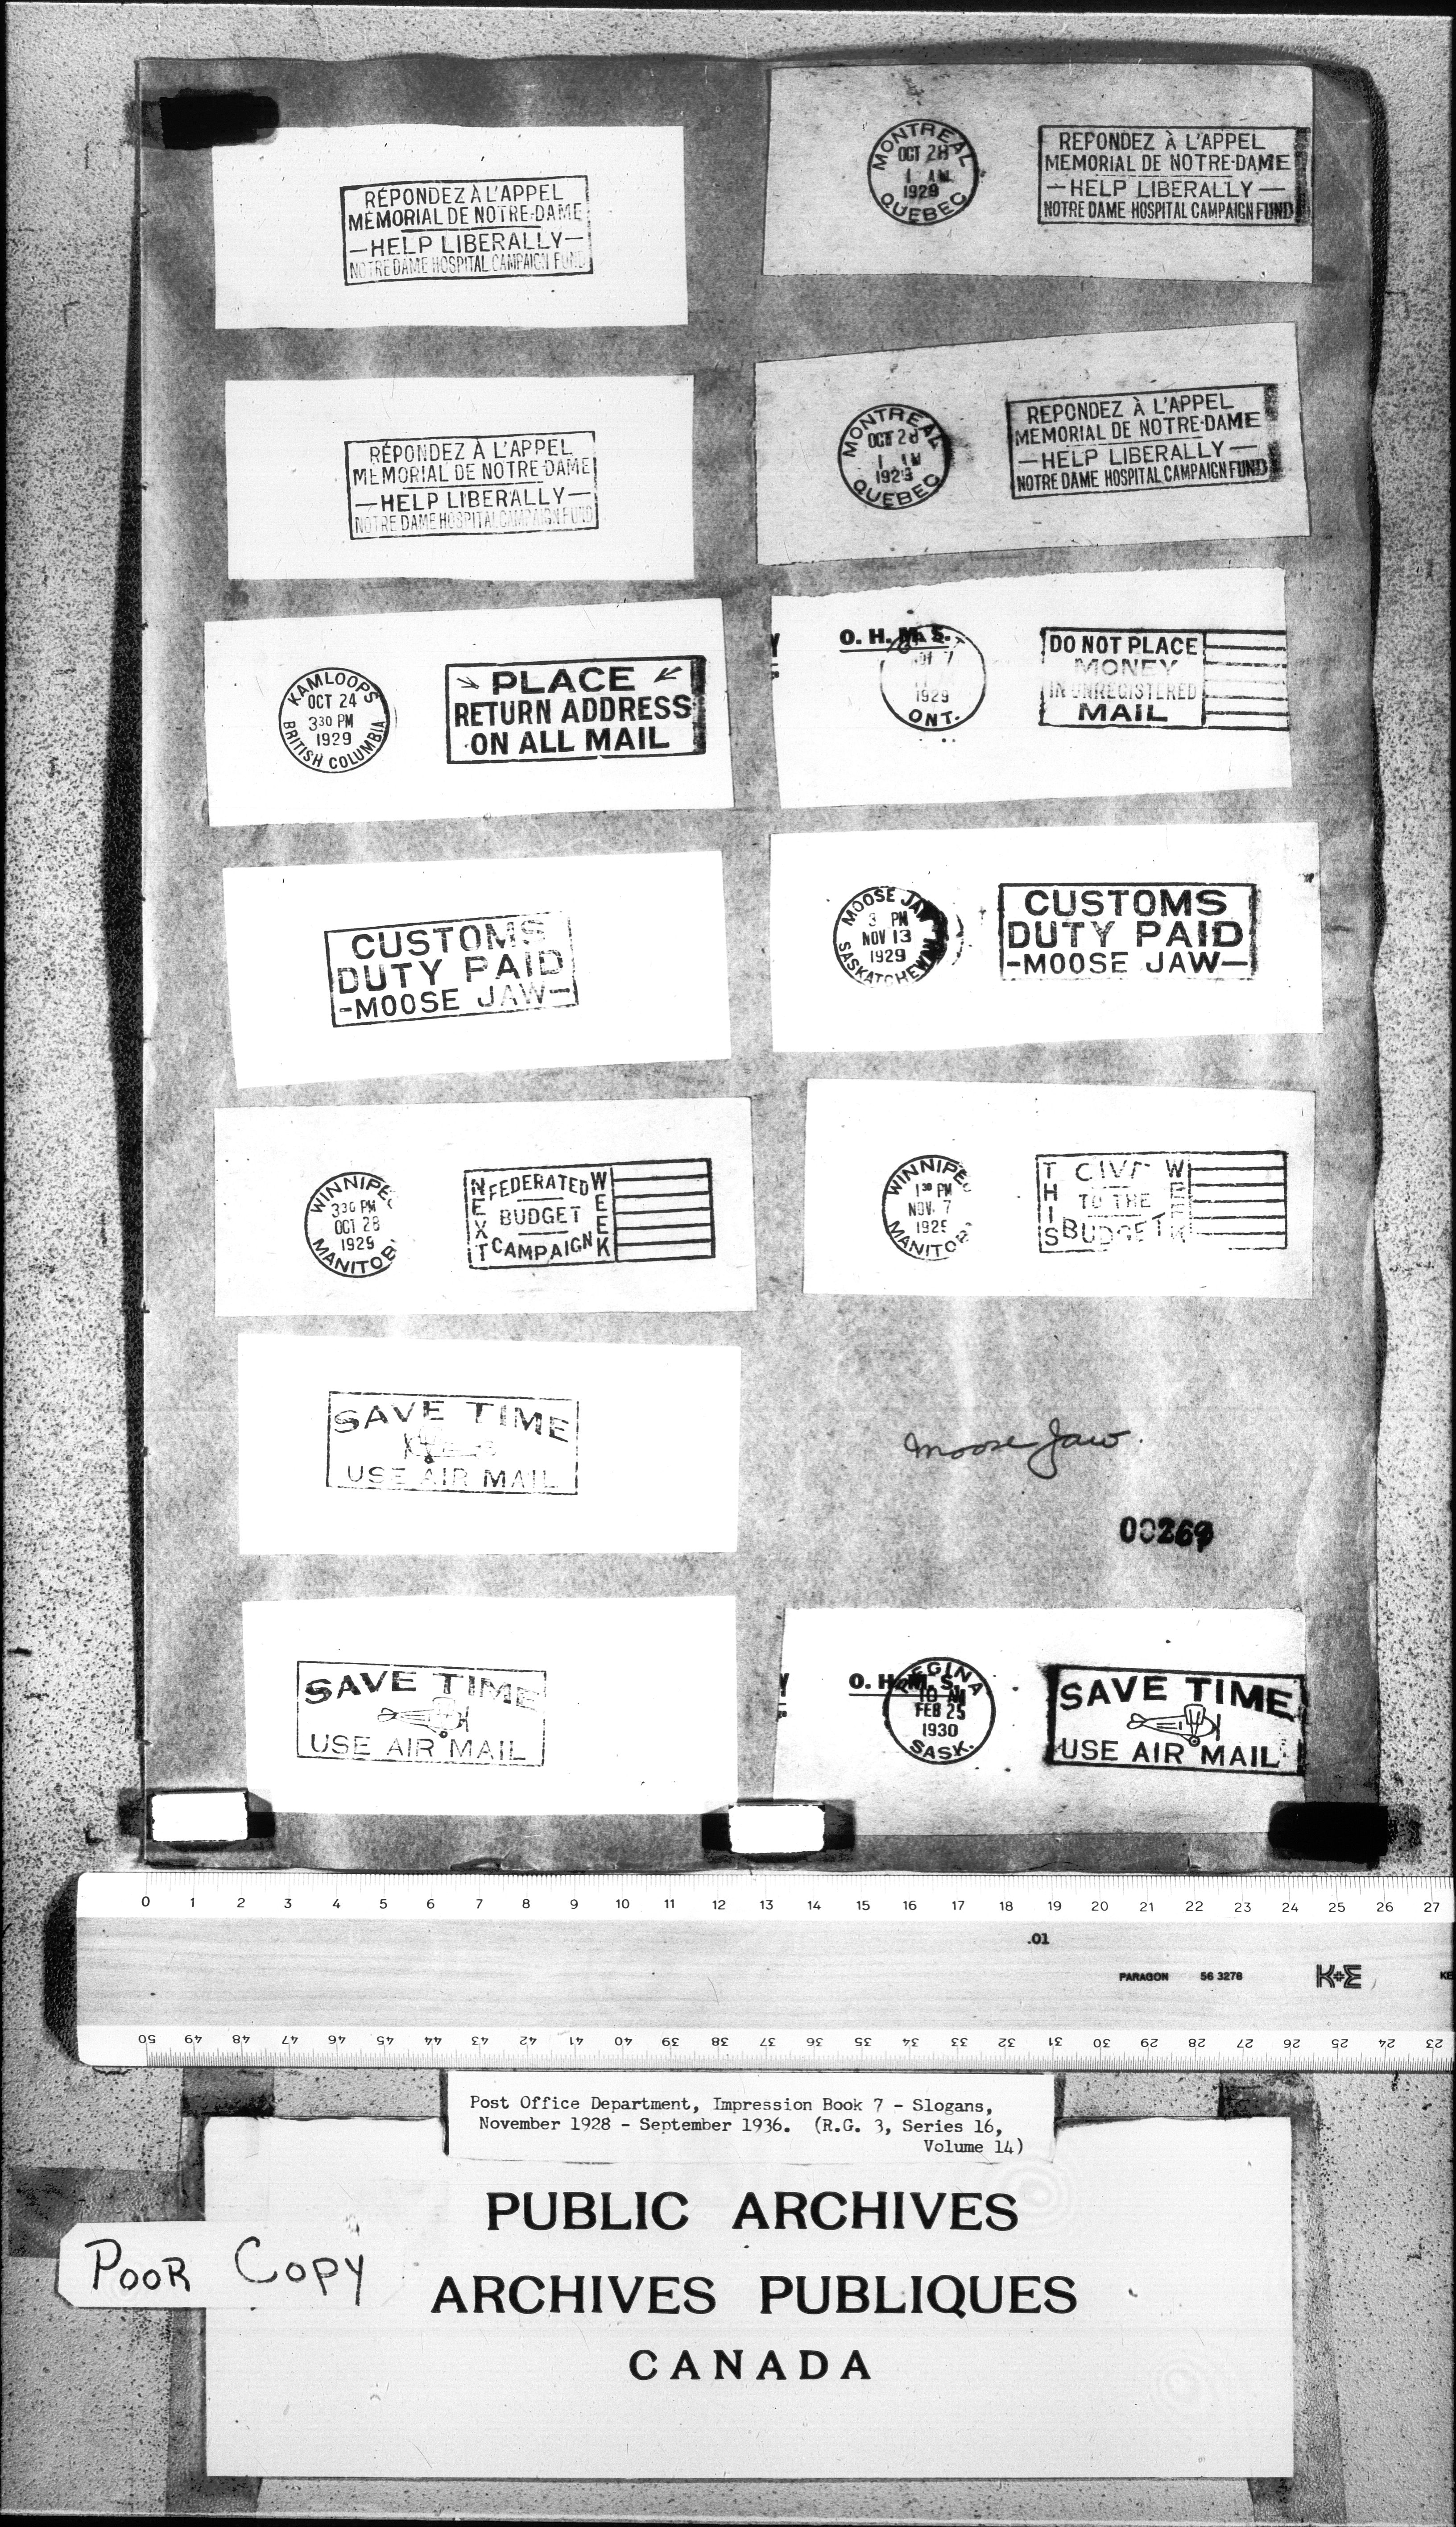 RÉPONDEZ À L'APPEL
MÉMORIAL DE NOTRE-DAME
—HELP LIBERALLY—
NOTRE DAME HOSPITAL CAMPAIGN FUND
MONTREAL
OCT 28
1 AM
1929
QUEBEC
REPONDEZ À L'APPEL
MEMORIAL DE NOTRE-DAME
—HELP LIBERALLY—
NOTRE DAME HOSPITAL CAMPAIGN FUND
RÉPONDEZ À L'APPEL
MEMORIAL DE NOTRE-DAME
—HELP LIBERALLY—
NOTRE DAME HOSPITAL CAMPAIGN FUND
MONTREAL
OCT 28
1 AM
1929
QUEBEC
REPONDEZ À L'APPEL
MEMORIAL DE NOTRE-DAME
—HELP LIBERALLY—
NOTRE DAME HOSPITAL CAMPAIGN FUND
KAMLOOPS
OCT 24
3 30 PM
1929
BRITISH COLUMBIA
PLACE
RETURN ADDRESS
ON ALL MAIL
O. H. M. S.
7
1929
ONT.
DO NOT PLACE
MONEY
IN UNREGISTERED
MAIL
CUSTOMS
DUTY PAID
-MOOSE JAW-
MOOSE JAW
3 PM
NOV 13
1929
SASKATCHEWAN
CUSTOMS
DUTY PAID
-MOOSE JAW-
WINNIPEG
3 30 PM
OCT 28
1929
MANITOBA
NEXT
FEDERATED
BUDGET
CAMPAIGN
WEEK
WINNIPEG
1 30 PM
NOV. 7
1929
MANITOBA
THIS
GIVE
TO THE
BUDGET
WEEK
SAVE TIME
USE AIR MAIL
Moose Jaw.
00269
SAVE TIME
USE AIR MAIL
O. H. M. S.
REGINA
10 AM
FEB 25
1930
SASK.
SAVE TIME
USE AIR MAIL
0 1 2 3 4 5 6 7 8 9 10 11 12 13 14 15 16 17 18 19 20 21 22 23 24 25 26 27
.01
PARAGON 56 3278 K+E KE
50 49 48 47 46 45 44 43 42 41 40 39 38 37 36 35 34 33 32 31 30 29 28 27 26 25 24 23
Post Office Department, Impression Book 7 - Slogans,
November 1928 - September 1936. (R.G. 3, Series 16,
Volume 14)
PUBLIC ARCHIVES
POOR COPY
ARCHIVES PUBLIQUES
CANADA